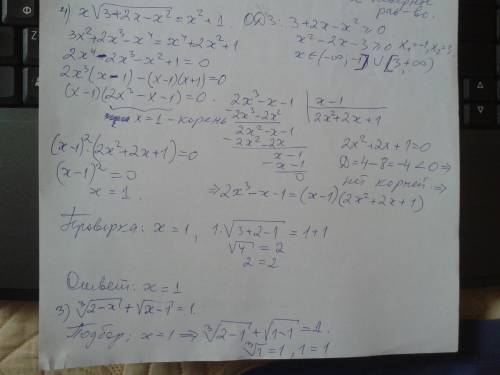 рав-во.
2) x√(3+2x-x²) = x²+1. ОДЗ: 3+2x-x²≥0
3x²+2x³-x⁴=x⁴+2x²+1 x²-2x-3≥0 x₁=-1, x₂=3.
2x⁴-2x³-x²+1=0 x∈(-∞;-1]∪[3;+∞)
2x³(x-1)-(x-1)(x+1)=0
(x-1)(2x³-x-1)=0. 2x³-x-1 | x-1
x=1-корень -2x³-2x² 2x²+2x+1
2x²-x-1
(x-1)²·(2x²+2x+1)=0 -2x²-2x 2x²+2x+1=0
(x-1)²=0 x-1 D=4-8=-4<0⇒
x=1. -x-1 нет корней⇒
0
⇒2x³-x-1=(x-1)(2x²+2x+1)
Проверка: x=1, 1·√(3+2-1)=1+1
√4=2
2=2
Ответ: x=1
3) ∛(2-x)+√(x-1)=1.
Подбор: x=1⇒∛(2-1)+√(1-1)=1.
∛1=1, 1=1